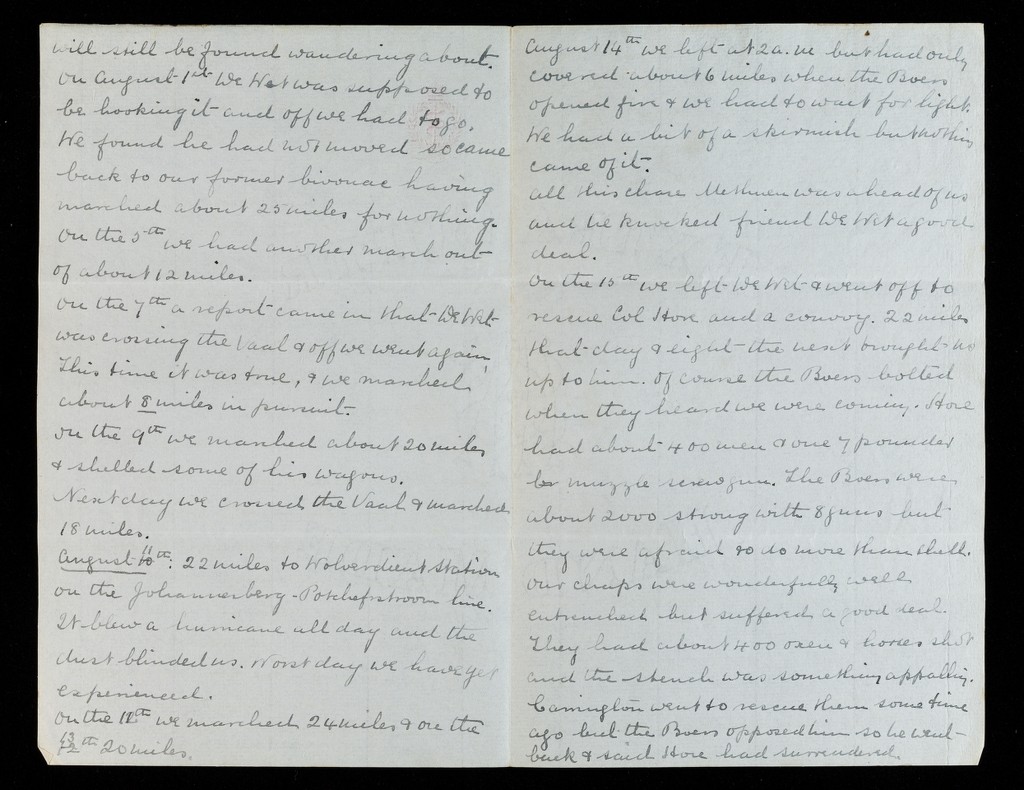 will still be found wandering about.
On August 1st De Wet was supposed to
be hooking it and off we had to go.
We found he had not moved so came
back to our former bivouac having
marched about 25 miles for nothing.
On the 5th we had another march out
of about 12 miles.
On the 7th a report came in that De Wet
was crossing the Vaal & off we went again.
This time it was true, & we marched
about 8 miles in pursuit.
On the 9th we marched about 20 miles
& shelled some of his wagons.
Next day we crossed the Vaal & marched
18 miles.
August 11th: 22 miles to Wolverdient Station
on the Johannesberg-Potchefstroom line.
It blew a hurricane all day and the
dust blinded us. Worst day we have yet
experienced.
On the 12th we marched 24 miles & on the
13th 20 miles.
August 14th we left at 2 a.m but had only
covered about 6 miles when the Boers
opened fire & we had to wait for light.
We had a bit of a skirmish but nothing
came of it.
All this chase Methuen was ahead of us
and he knocked friend De Wet a good
deal.
On the 15th we left De Wet & went off to
rescue Col Hore and a convoy. 22 miles
that day & eight the next brought us
up to him. Of course the Boers bolted
when they heard we were coming. Hore
had about 400 men & one 7 pounder
muzzle screw gun. The Boers were
about 2000 strong with 8 guns but
they were afraid to do more than shell.
Our chaps were wonderfully well
entrenched but suffered a good deal.
They had about 400 oxen & horses shot
and the stench was something appalling.
Carrington went to rescue them some time
ago but the Boers opposed him so he went
back & said Hore had surrendered.